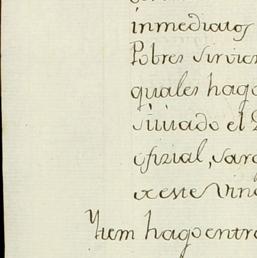 inmediatos
Pobres sirvien
quales hago
situado el
ofizial, sar
este Vin
Ytem hago entre